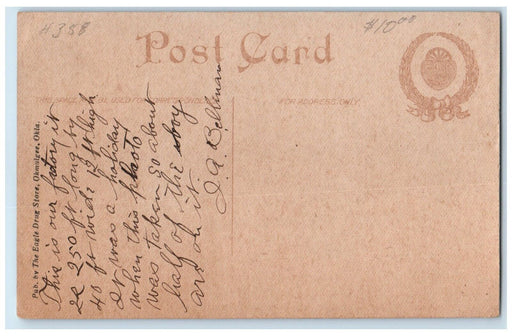 4358
$10.00
Post Card
THIS SPACE MAY BE USED FOR CORRESPONDENCE
FOR ADDRESS ONLY
Pub. by The Eagle Drug Store, Okmulgee, Okla.
This is our factory it
is 250 ft long by
40 ft wide 12 ft high
It was a holiday
when this photo
was taken so about
half of the boy
are on it.
J. A. Bellman